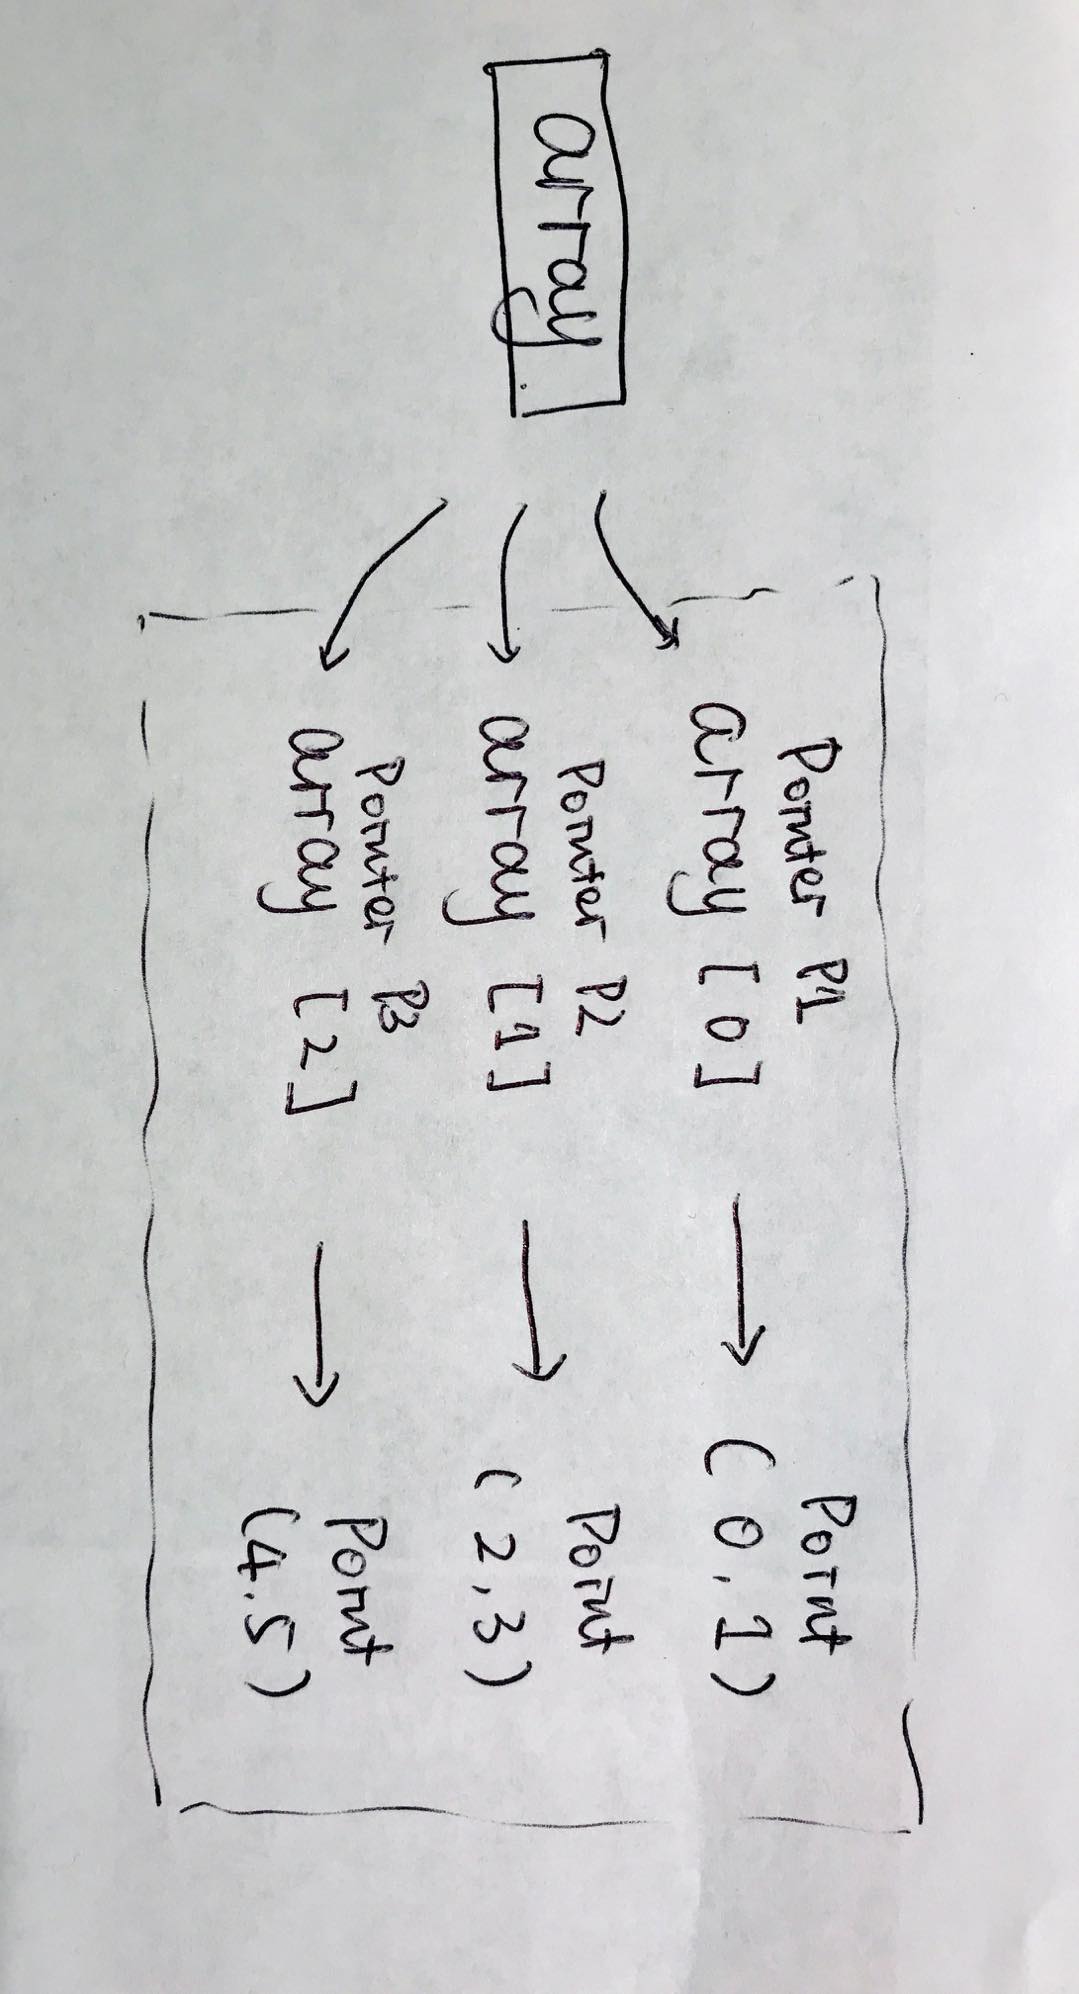 array
Pointer P1
array [0]
Point
(0,1)
Pointer P2
array [1]
Point
(2,3)
Pointer P3
array [2]
Point
(4.5)